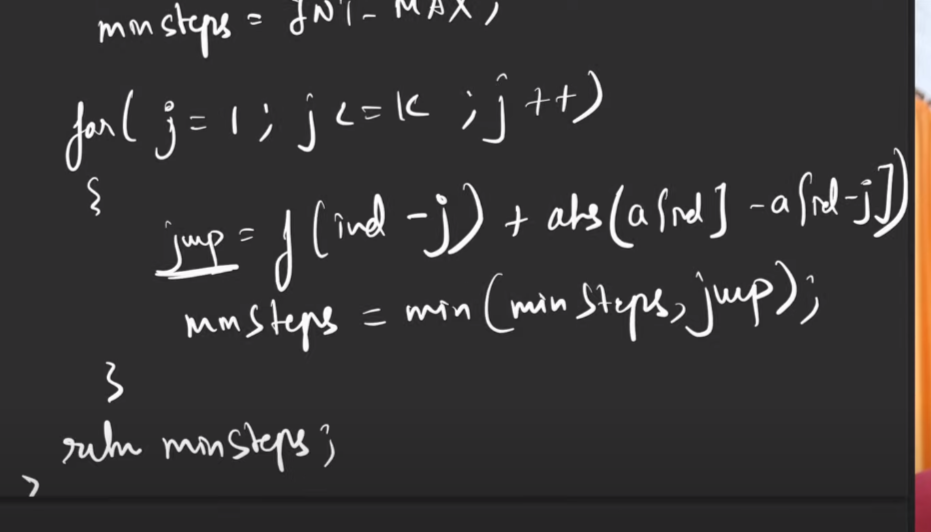 mnsteps = INT_MAX;
for( j = 1; j <= K ; j++)
{
jmp = f(ind - j) + abs(a[ind] - a[ind-j])
mnsteps = min(minsteps, jmp);
}
return minsteps;
}